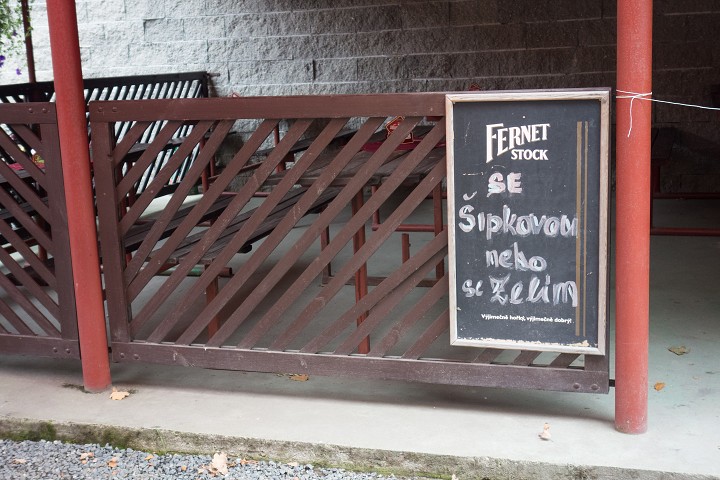 FERNET
STOCK
SE
Šípkovou
nebo
se Zelím
Výjimečně hořký, výjimečně dobrý!